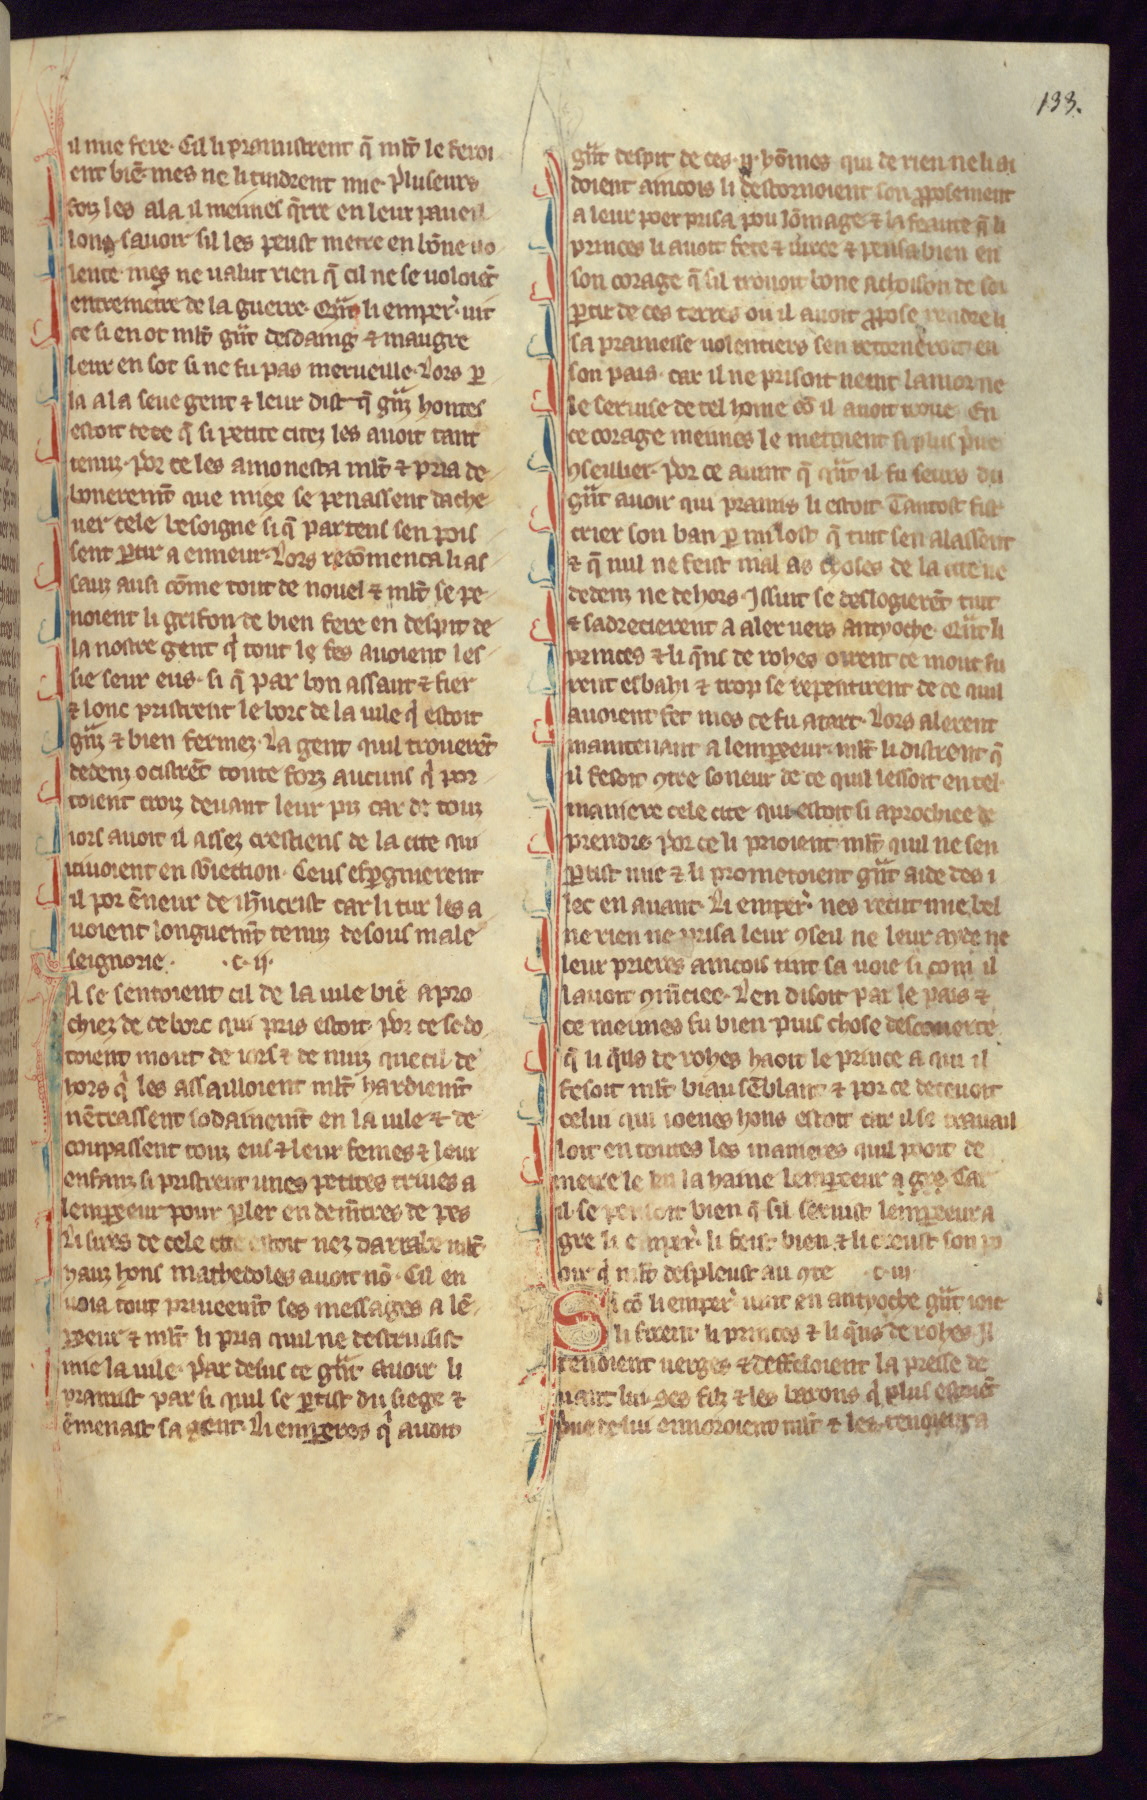 133.
il mie fere. Cil li pramistrent q̃ ml̃t le feroi
ent biẽ. mes ne li tindrent mie. Pluseurs
foiz les ala il meimes q̃rre en leur paueil
lons sauoir sil les peust metre en bõne uo
lente. mes ne ualut rien q̃ cil ne se uoloiẽt
entremetre de la guerre. Qñt li emper̾. uit
ce si en ot ml̃t gñt desdaing ⁊ maugre
leur en sot si ne fu pas merueille. Lors p̱
la a la seue gent ⁊ leur dist q̃ gñz hontes
estoit tete q̃ si petite citez les auoit tant
tenuz. Por ce les amonesta ml̃t ⁊ pria de
bonerem̃t que miex se penassent dache
uer cele besoigne si q̃ par tens sen pois
sent p̱tir a enneur. Lors recõmenca li as
sauz ausi cõme tout de nouel ⁊ ml̃t se pe
noient li grifon de bien fere en despit de
la nostre gent q̾ tout le fes auoient les
sie seur eus. si q̃ par bon assaut ⁊ fier
⁊ lonc pristrent le borc de la uile q̾ estoit
gñz ⁊ bien fermez. La gent quil trouerẽt
dedenz ocistrẽt toute forz aucuns q̾ por
toient croiz deuant leur piz car de touz
iors auoit il assez crestiens de la cite qui
uiuoient en sub̾iection. Ceus esp̱gnierent
il por ẽneur de ih̃ucrist car li tur les a
uoient longuem̃t tenuz desous male
seignorie. .c. ij.
A se sentoient cil de la uile biẽ apro
chiez de ce borc qui pris estoit. Por ce se do
toient mout de iors ⁊ de nuiz que cil de
hors q̾ les assailloient ml̃t hardiem̃t
nẽtrassent sodainem̃t en la uile ⁊ de
coupassent touz eus ⁊ leur femes ⁊ leur
enfanz si pristrent unes petites triues a
lemp̱eeur pour p̱ler en dem̃tres de pes
Li sires de cele cite estoit nez darrabe ml̃t
hauz hons machedoles auoit nõ. Cil en
uoia tout priueem̃t ses messages a lẽ
p̱eeur ⁊ ml̃t li pria quil ne destruisist
mie la uile. Par desus ce gñt auoir li
pramist par si quil se p̱tist du siege ⁊
ẽmenast sa gent. Li emp̱eres q̾ auoit
gñt despit de ces .ij. hõmes qui de rien ne li ai
doient aincois li destornoient son p̱posement
a leur poer prisa pou lõmage ⁊ la feaute q̃ li
princes li auoit fete ⁊ iuree ⁊ pensa bien en
son corage q̃ sil trouoit bone achoison de soi
p̱tir de ces terres ou il auoit p̱pose rendre li
sa pramesse uolentiers sen retorneroit en
son pais. car il ne prisoit neint lamor ne
le seruise de tel home cõ il auoit troue. En
ce corage meimes le metoient si plus p̾ue
ꝯseillier. Por ce auint q̃ qñt il fu seurs du
gñt auoir qui pramis li estoit. Tantost fist
crier son ban p̱ mi lost q̃ tuit sen alassent
⁊ q̃ nul ne feist mal as choses de la cite ne
dedenz ne dehors. Issint se deslogierẽt tuit
⁊ sadrecierent a aler uers antyoche. Qñt li
princes ⁊ li q̃ns de rohes oirent ce mout fu
rent esbahi ⁊ trop se repentirent de ce quil
auoient fet mes ce fu a tart. Lors alerent
maintenant a lemp̱eeur. ml̃t li distrent q̃
il fesoit ꝯtre soneur de ce quil lessoit en tel
maniere cele cite qui estoit si aprochiee de
prendre. Por ce li prioient ml̃t quil ne sen
p̱tist mie ⁊ li prometoient gñt aide des i
lec en auant. Li emper̾. nes recut mie bel
ne rien ne prisa leur ꝯseil ne leur ayde ne
leur prieres aincois tint sa uoie si com il
lauoit ꝯmẽciee. Len disoit par le pais ⁊
ce meimes fu bien puis chose descouerte
q̃ li q̃ns de rohes haoit le prince a qui il
fesoit ml̃t biau sẽblant ⁊ por ce deceuoit
celui qui ioenes hons estoit car il se trauail
loit en toutes les manieres quil pooit de
metre le en la haine lemp̱eeur a gre. Car
il se pensoit bien q̃ sil seruist lemp̱eeur a
gre li emper̾. li feist bien ⁊ li creust son po
oir q̾ ml̃t despleust au ꝯte .c. iij.
Si cõ li emper̾ uint en antyoche gñt ioie
li firent li princes ⁊ li q̃ns de rohes. Il
tenoient uerges ⁊ deffesoient la presse de
uant lui. Ses filz ⁊ les barons q̾ plus estoiẽt
p̾ue de lui ennoroient ml̃t ⁊ les tenoient a